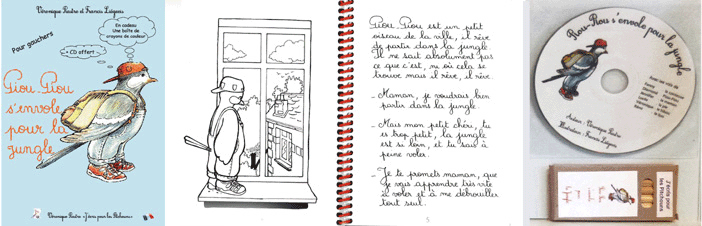 Véronique Pestre et Francis Latgeois
Pour gauchers
En cadeau
Une boîte de
crayons de couleur
+ CD offert
Piou-Piou
s'envole
pour la
jungle
Véronique Pestre
Piou Piou est un petit
oiseau de la ville, il rêve
de partir dans la jungle.
Il ne sait absolument pas
ce que c'est, ni où cela se
trouve mais il rêve, il rêve
- Maman, je voudrais bien
partir dans la jungle.
- Mais mon petit chéri, tu
es trop petit, la jungle
est si loin, et tu sais à
peine voler.
- Je te promets maman, que
je vais apprendre très vite
à voler et à me débrouiller
tout seul.
5
Piou-Piou s'envole pour la jungle
Auteur : Véronique Pestre
J'écris pour
les Pitchouns